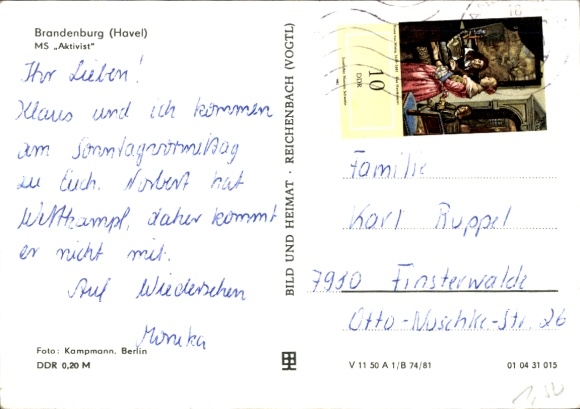 Brandenburg (Havel)
MS „Aktivist"
Ihr Lieben!
Klaus und ich kommen
am Sonntagvormittag
zu Euch. Norbert hat
Wettkampf, daher kommt
er nicht mit.
Auf Wiedersehen
Monika
Foto: Kampmann, Berlin
DDR 0,20 M
BILD UND HEIMAT · REICHENBACH (VOGTL)
10
DDR
Familie
Karl Ruppel
7980 Finsterwalde
Otto-Nuschke-Str. 26
V 11 50 A 1/B 74/81
01 04 31 015